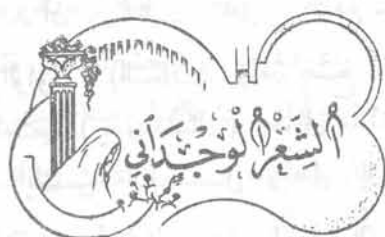 اَلشِّعْرُ الْوِجْدَانِي